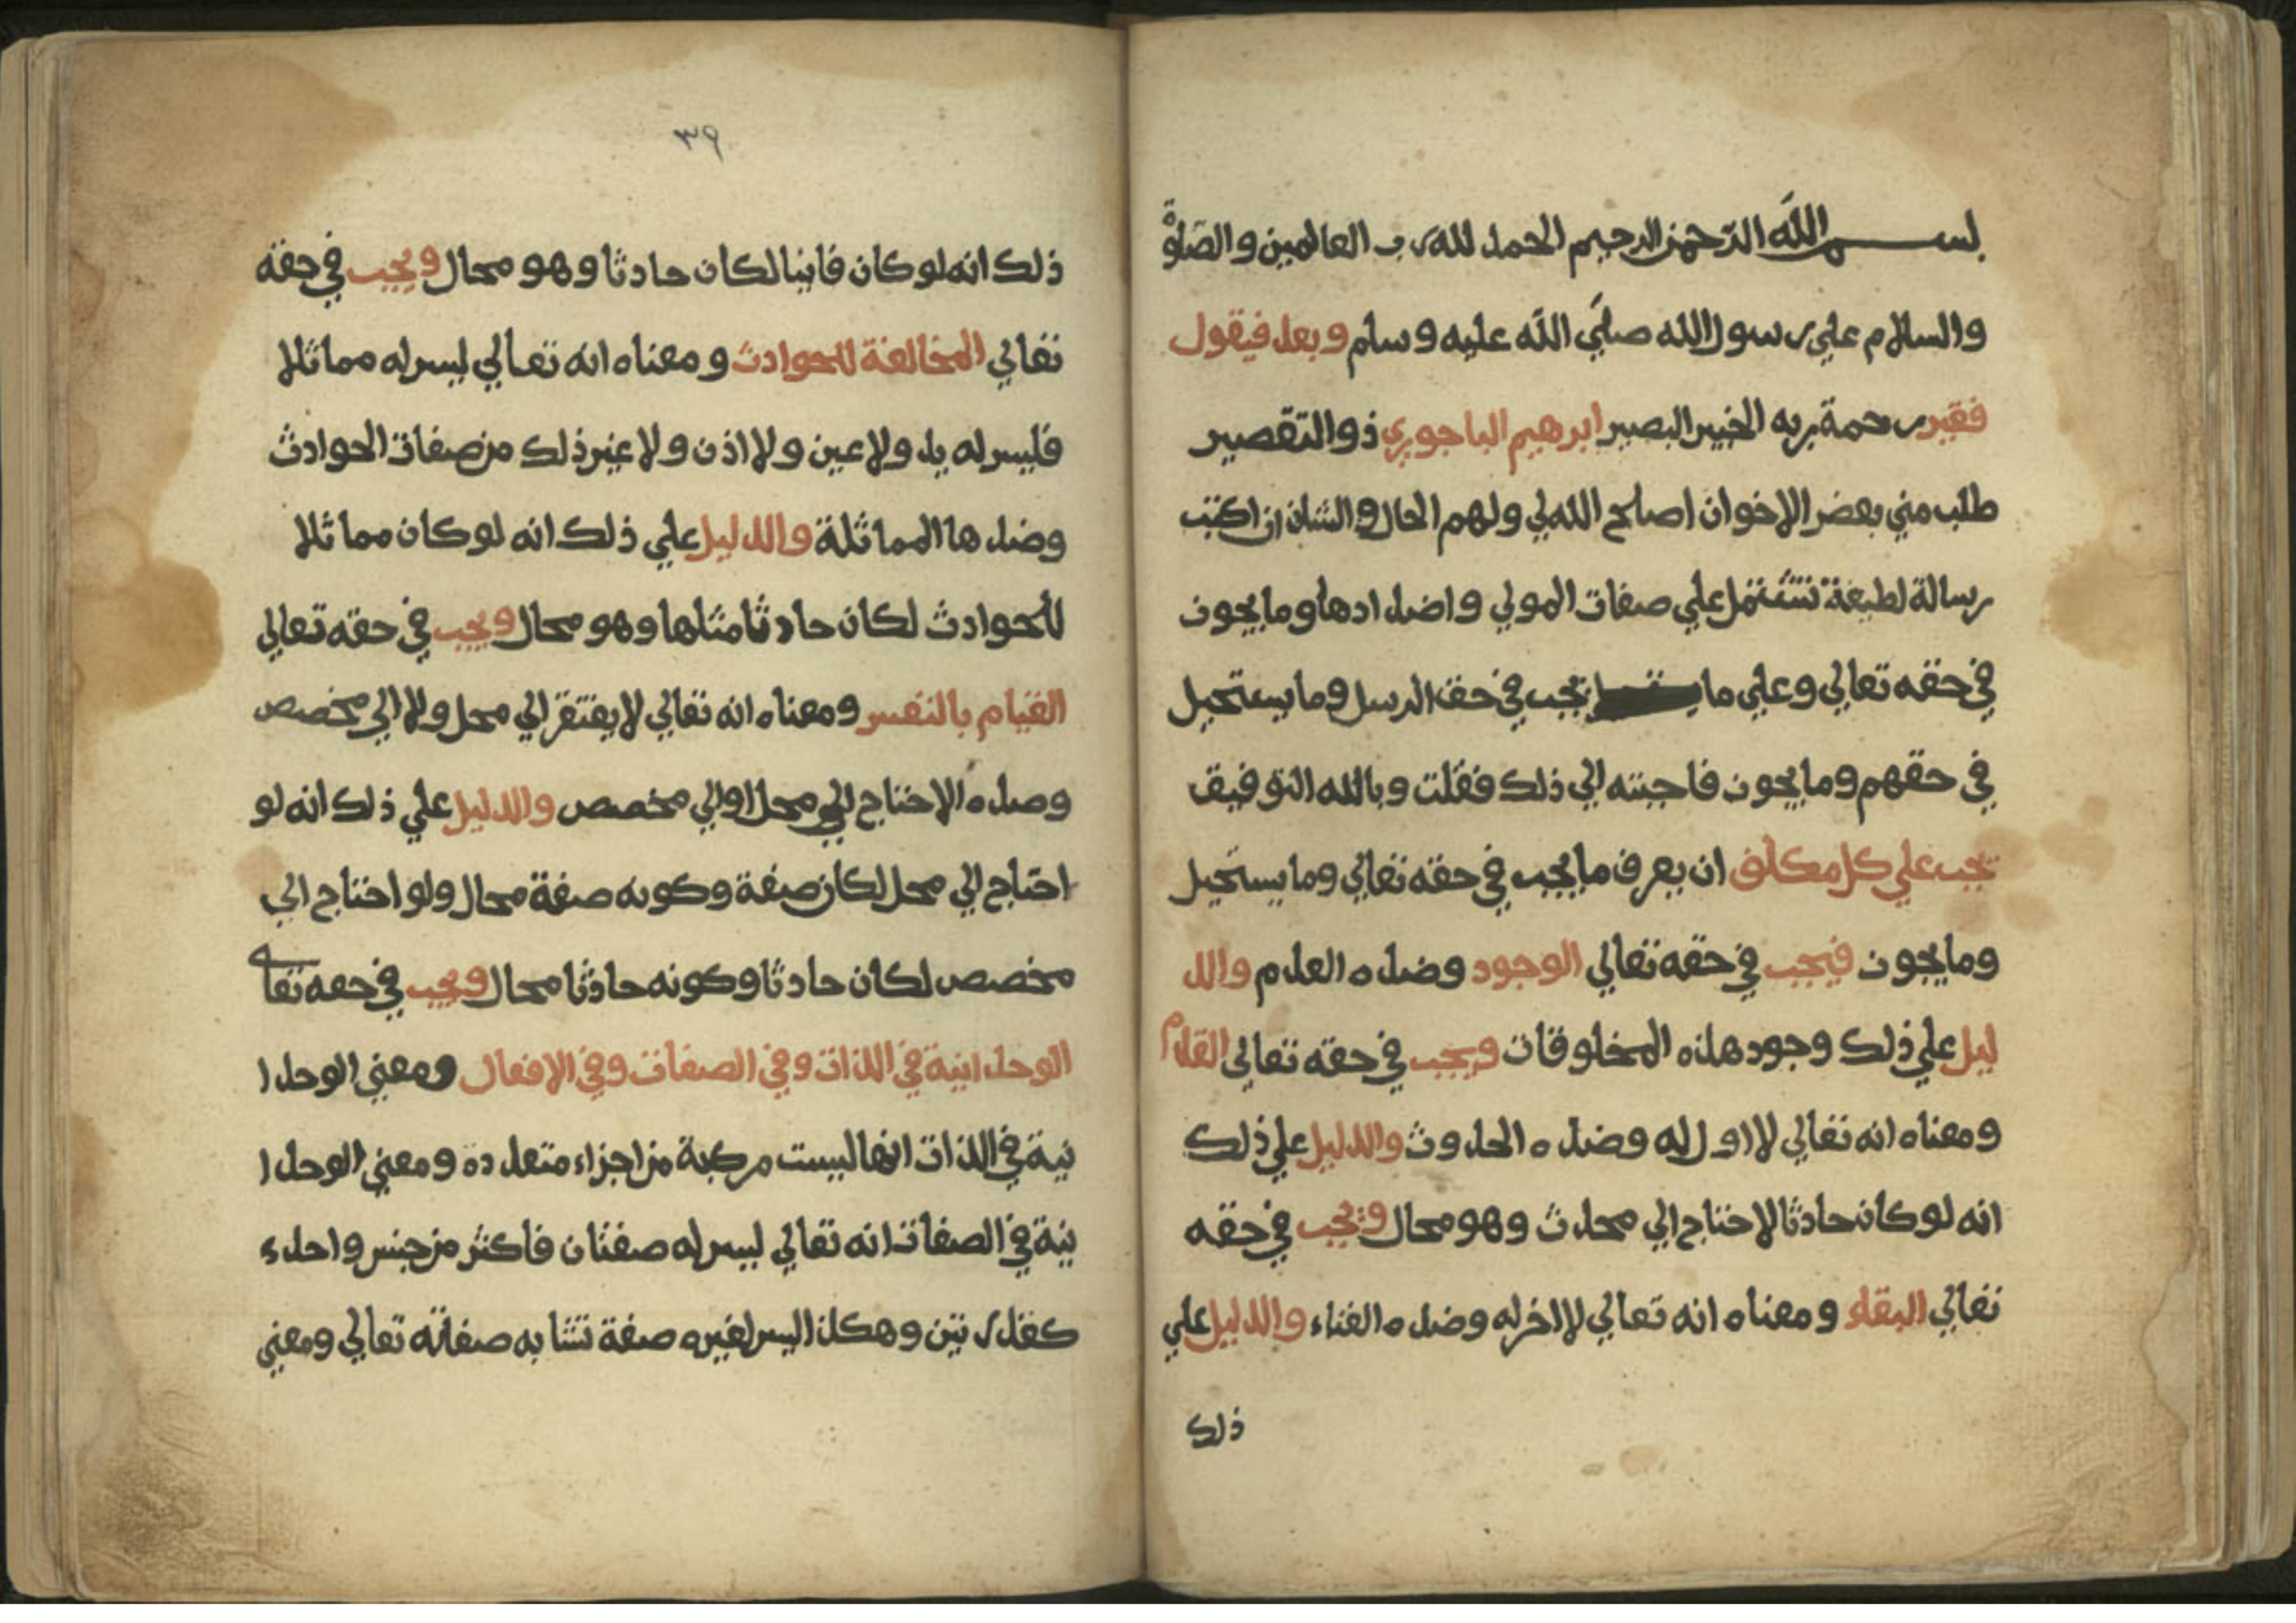 بسم الله الرحمن الرحيم الحمد لله رب العالمين والصلوة
والسلام علي رسول الله صلي الله عليه وسلم وبعد فيقول
فقير رحمة ربه الخبير البصير ابرهيم الباجوري ذو التقصير
طلب مني بعض الاخوان اصلح الله لي ولهم الحال والشان ان اكتب
رسالة لطيفة تشتمل علي صفات المولي واضدادها وما يجوز
في حقه تعالي وعلي ما يجب في حق الرسل وما يستحيل
في حقهم وما يجوز فاجبته الي ذلك فقلت وبالله التوفيق
يجب علي كل مكلف ان يعرف ما يجب في حقه تعالي وما يستحيل
وما يجوز فيجب في حقه تعالي الوجود وضده العدم والد
ليل علي ذلك وجود هذه المخلوقات ويجب في حقه تعالي القدم
ومعناه انه تعالي لا اول له وضده الحدوث والدليل علي ذلك
انه لو كان حادثا لاحتاج الي محدث وهو محال ويجب في حقه
تعالي البقاء ومعناه انه تعالي لا اخر له وضده الفناء والدليل علي
ذلك
٣٩
ذلك انه لو كان فانيا لكان حادثا وهو محال ويجب في حقه
تعالي المخالفة للحوادث ومعناه انه تعالي ليس له مماثلا
فليس له يد ولا عين ولا اذن ولا غير ذلك من صفات الحوادث
وضدها المماثلة والدليل علي ذلك انه لو كان مماثلا
للحوادث لكان حادثا مثلها وهو محال ويجب في حقه تعالي
القيام بالنفس ومعناه انه تعالي لا يفتقر الي محل ولا الي مخصص
وضده الاحتاج الي محل او الي مخصص والدليل علي ذلك انه لو
احتاج الي محل لكان صفة وكونه صفة محال ولو احتاج الي
مخصص لكان حادثا وكونه حادثا محال ويجب في حقه تعا
الوحدانية في الذات وفي الصفات وفي الافعال ومعني الوحدا
نية في الذات انها ليست مركبة من اجزاء متعددة ومعني الوحدا
نية في الصفات انه تعالي ليس له صفتان فاكثر من جنس واحد
كقدرتين وهكذا ليس لغيره صفة تشابه صفاته تعالي ومعني